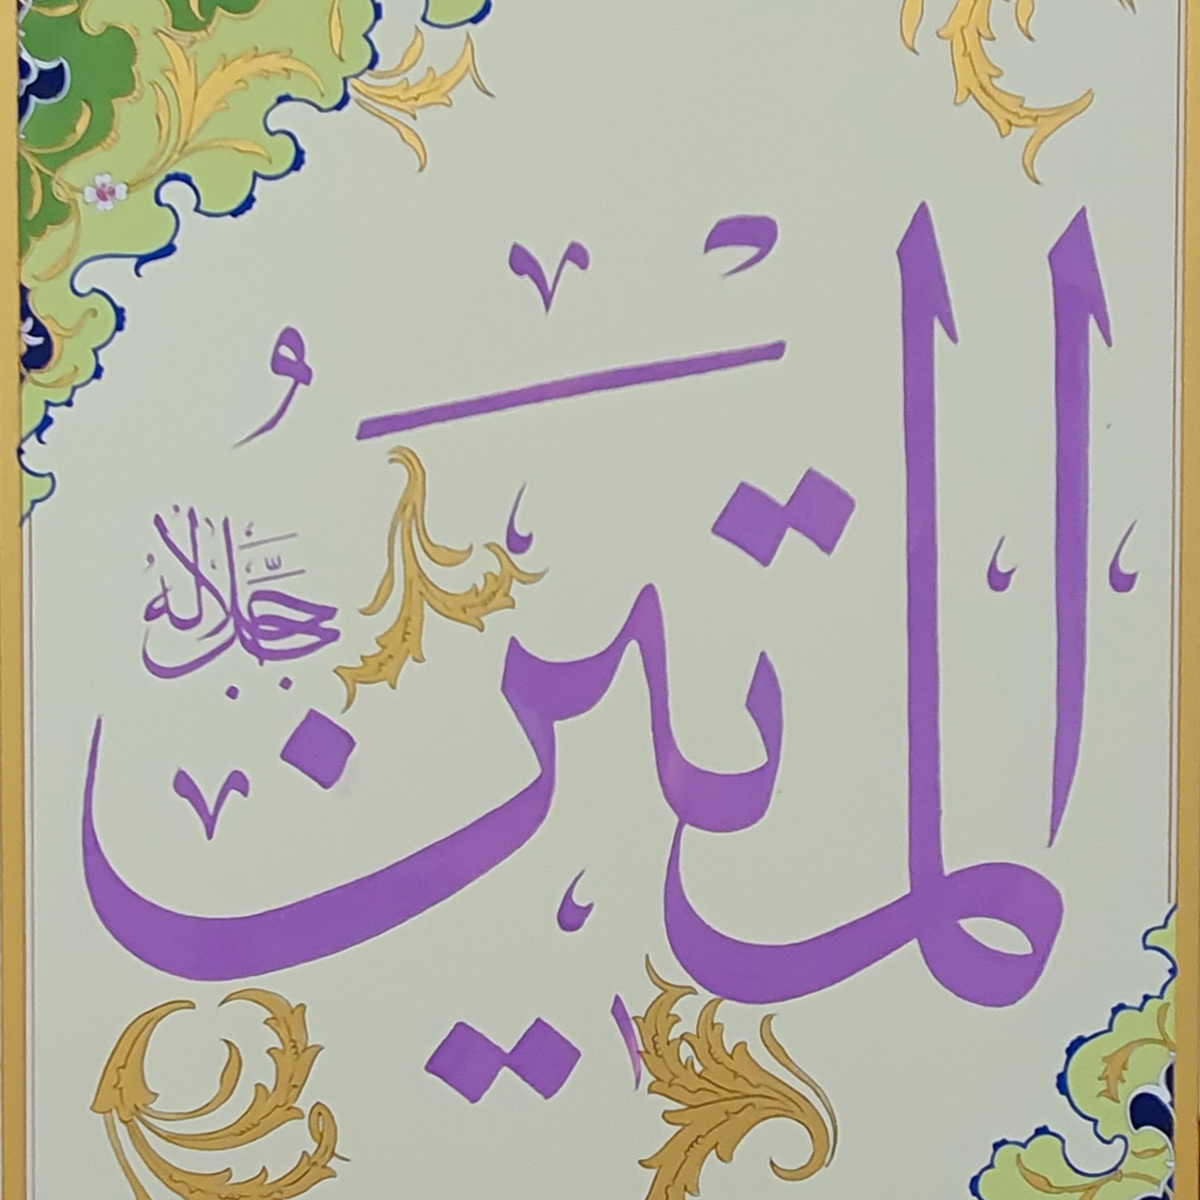 المتين
جل جلاله